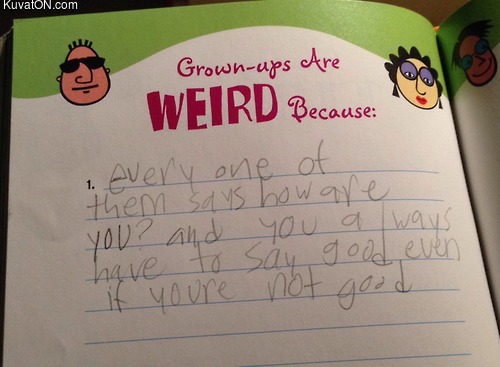 KuvatON.com
Grown-ups Are
WEIRD Because:
1. every one of
them says how are
you? and you always
have to say good even
if youre not good